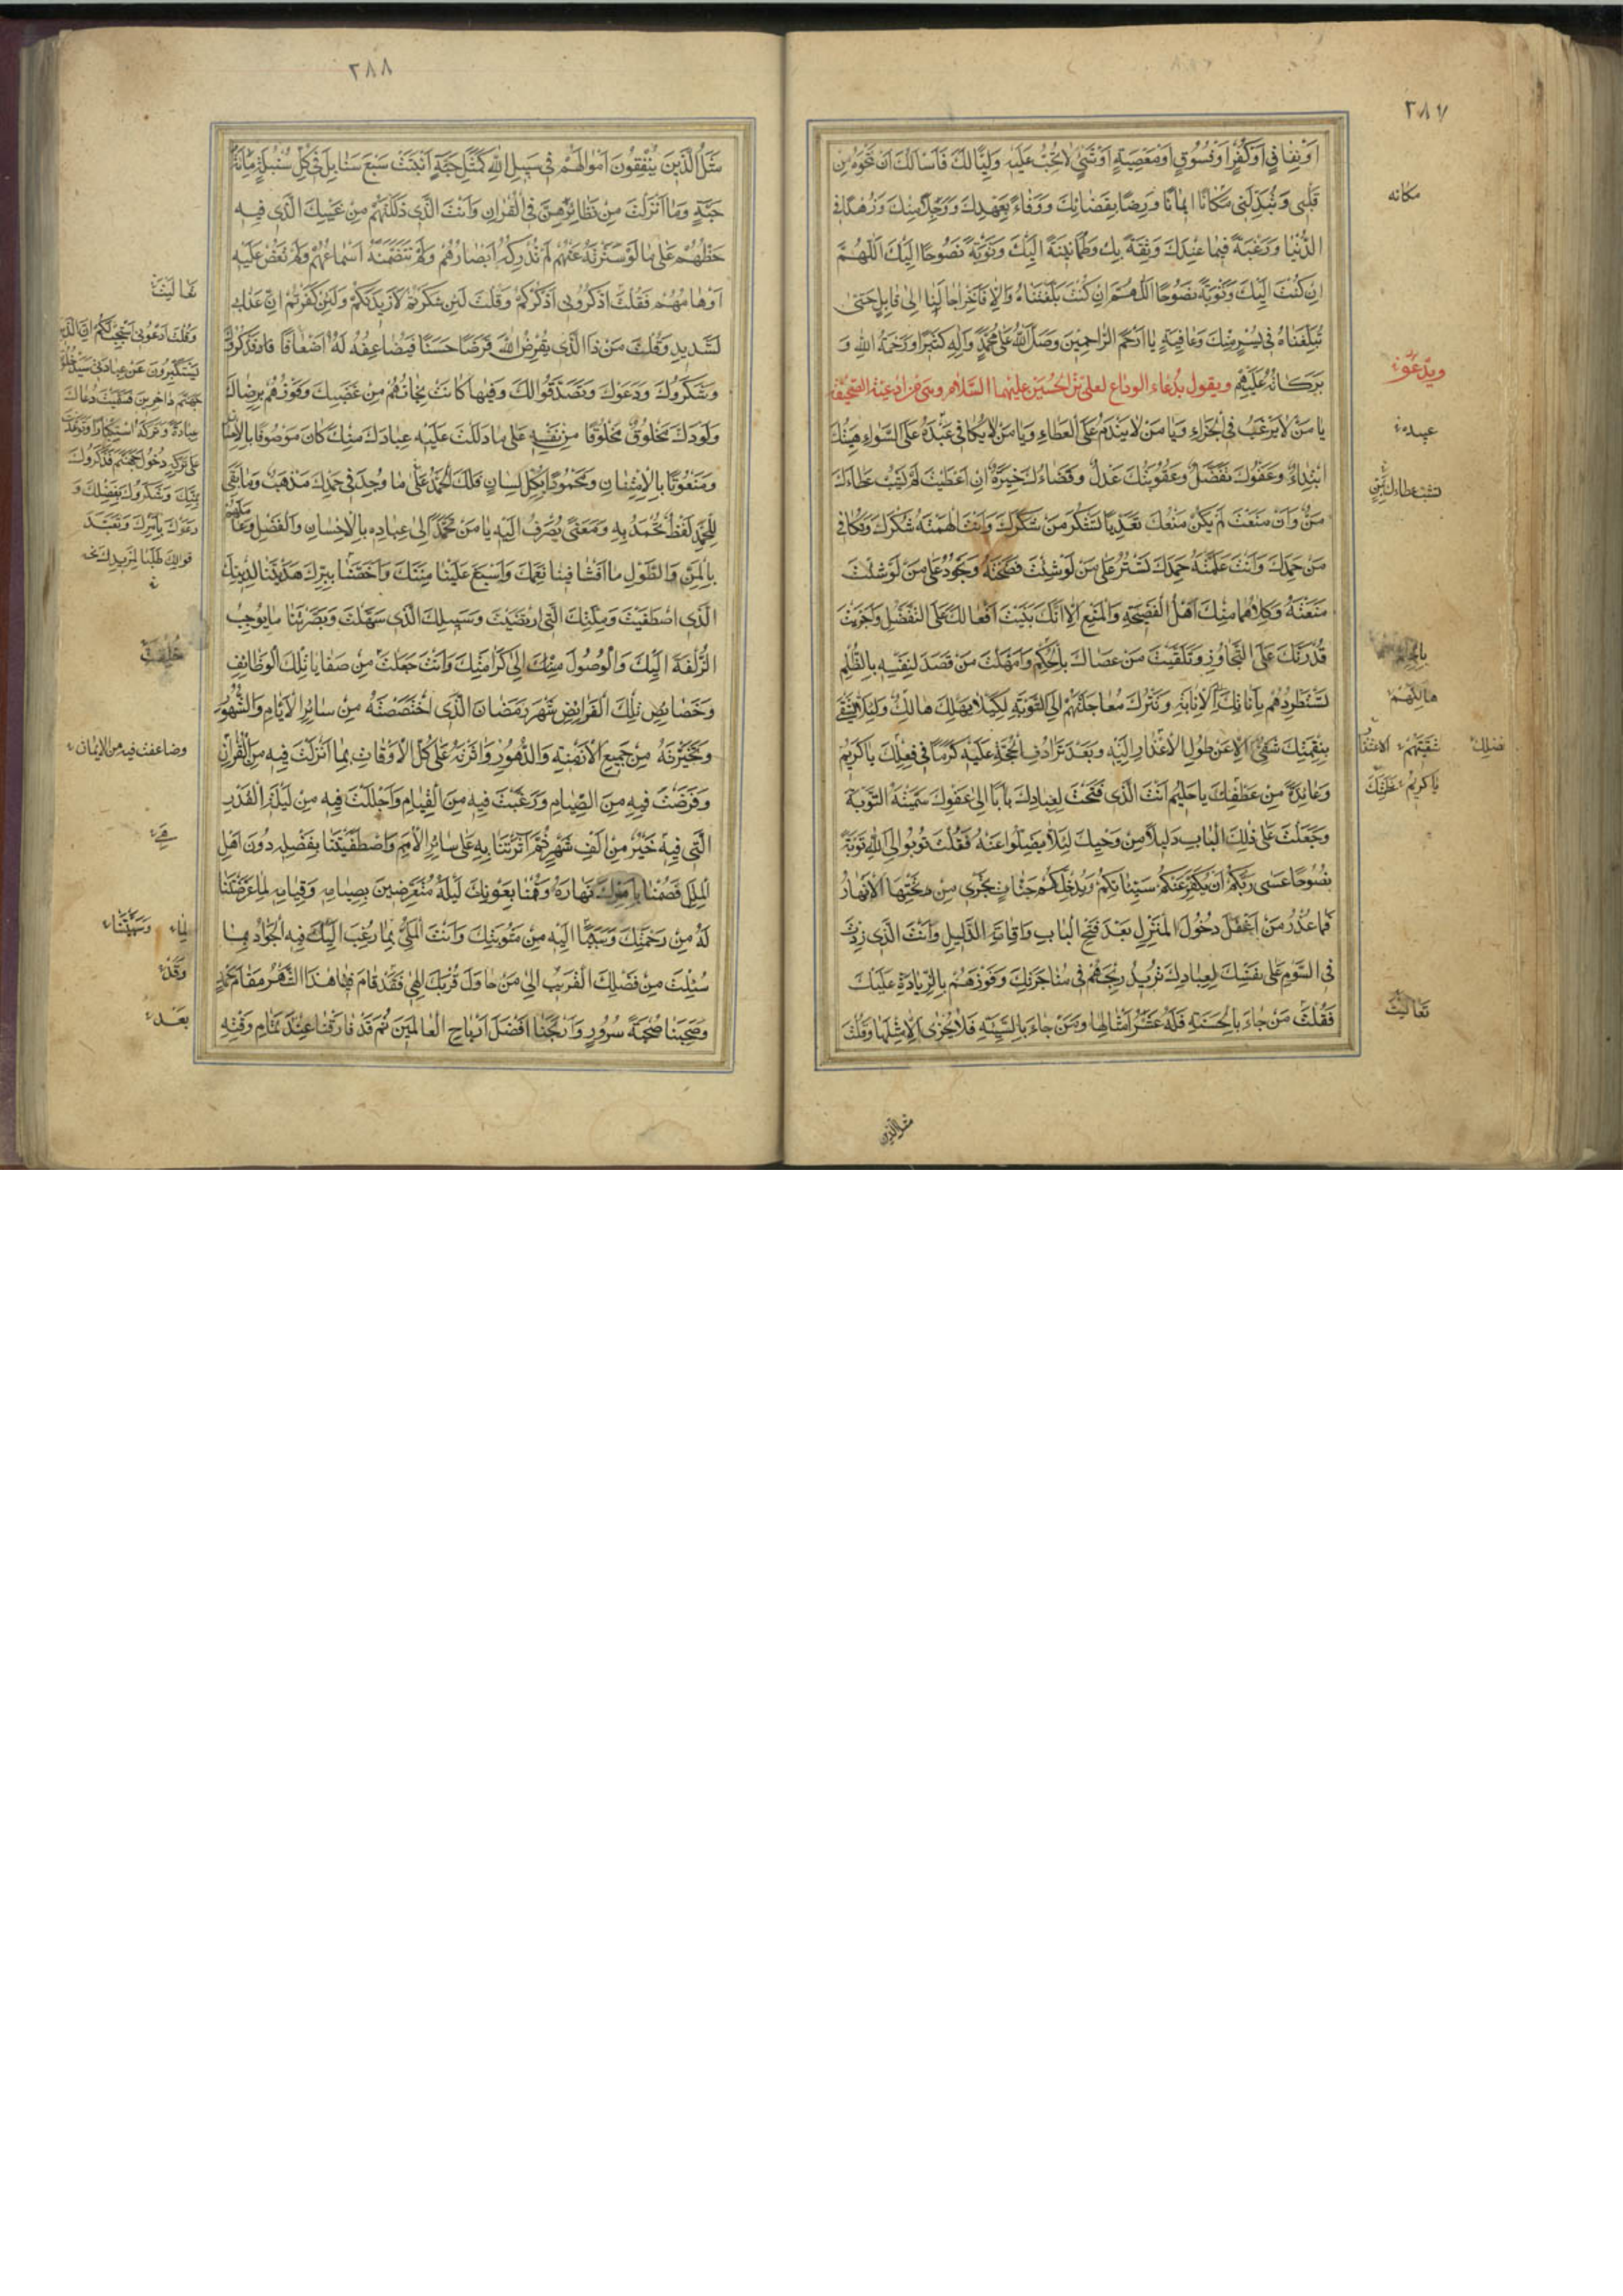 ٣٨٧
اَوْ نِفاقٍ اَوْ كُفْرٍ اَوْ فُسُوقٍ اَوْ مَعْصِيَةٍ اَوْ شَيْءٍ لا تُحِبُّ عَلَيْهِ وَلِيًّا لَكَ فَاَسْاَلُكَ اَنْ تَمْحُوَهُ مِنْ
قَلْبي وَتُبَدِّلَنى مَكانًا ايمانًا وَرِضًا بِقَضائِكَ وَوَفاءً بِعَهْدِكَ وَوَجَلًا مِنْكَ وَزُهْدًا فِي
الدُّنْيا وَرَغْبَةً فيما عِنْدَكَ وَثِقَةً بِكَ وَطُمَأْنينَةً اِلَيْكَ وَتَوْبَةً نَصُوحًا اِلَيْكَ اَللّهُمَّ
اِنْ كُنْتَ اِلَيْكَ وَتَوْبَةً نَصُوحًا اَللّهُمَّ اِنْ كُنْتَ بَلَّغْتَناهُ وَاِلّا فَاَخِّرْ اجالَنا اِلى قابِلٍ حَتّى
تُبَلِّغَناهُ فى يُسْرٍ مِنْكَ وَعافِيَةٍ يا اَرْحَمَ الرّاحِمينَ وَصَلَّى اللّهُ عَلى مُحَمَّدٍ وَالِهِ كَثيرًا وَرَحْمَةُ اللهِ وَ
بَرَكاتُهُ عَلَيْهِمْ ويقول بدُعاء الوداع لعلى بن الحُسَيْن عليهما السَّلام وهى من ادعية الصحيفة
يا مَنْ لا يَرْغَبُ فِي الْجَزاءِ وَيا مَنْ لا يَنْدَمُ عَلَى الْعَطاءِ وَيا مَنْ لا يُكافى عَبْدَهُ عَلَى السَّواءِ مِنَّتُكَ
ابْتِداءٌ وَعَفْوُكَ تَفَضُّلٌ وَعُقُوبَتُكَ عَدْلٌ وَقَضاءُكَ خِيَرَةٌ اِنْ اَعْطَيْتَ لَمْ تَشُبْ عَطاءَكَ
مَنٌّ وَاِنْ مَنَعْتَ لَمْ يَكُنْ مَنْعُكَ تَعَدِّيًا تَشْكُرُ مَنْ شَكَرَكَ وَاَنْتَ اَلْهَمْتَهُ شُكْرَكَ وَتُكافى
مَنْ حَمِدَكَ وَاَنْتَ عَلَّمْتَهُ حَمْدَكَ تَسْتُرُ عَلى مَنْ لَوْ شِئْتَ فَضَحْتَهُ وَتَجُودُ عَلى مَنْ لَوْ شِئْتَ
مَنَعْتَهُ وَكِلاهُما مِنْكَ اَهْلُ الْفَضيحَةِ وَالْمَنْعِ اِلّا اَنَّكَ بَنَيْتَ اَفْعالَكَ عَلَى التَّفَضُّلِ وَاَجْرَيْتَ
قُدْرَتَكَ عَلَى التَّجاوُزِ وَتَلَقَّيْتَ مَنْ عَصاكَ بِالْحُكْمِ وَاَمْهَلْتَ مَنْ قَصَدَ لِنَفْسِهِ بِالظُّلْمِ
تَسْتَطْرِدُهُمْ بِاَناتِكَ اِلَى الْاِنابَةِ وَتَتْرُكُ مُعاجَلَتَهُمْ اِلَى التَّوْبَةِ لِكَيْلا يَهْلِكَ هالِكٌ وَلِئَلّا يَشْقى
بِنِقْمَتِكَ شَقِيٌّ اِلّا عَنْ طُولِ الْاِعْذارِ اِلَيْهِ وَبَعْدَ تَرادُفِ الْحُجَّةِ عَلَيْهِ كَرَمًا فى فِعْلِكَ يا كَريمُ
وَعائِدَةً مِنْ عَطْفِكَ يا حَليمُ اَنْتَ الَّذى فَتَحْتَ لِعِبادِكَ بابًا اِلى عَفْوِكَ سَمَّيْتَهُ التَّوْبَةَ
وَجَعَلْتَ عَلى ذلِكَ الْبابِ دَليلًا مِنْ وَحْيِكَ لِئَلّا يَضِلُّوا عَنْهُ فَقُلْتَ تُوبُوا اِلَى اللهِ تَوْبَةً
نَصُوحًا عَسى رَبُّكُمْ اَنْ يُكَفِّرَ عَنْكُمْ سَيِّئاتِكُمْ وَيُدْخِلَكُمْ جَنّاتٍ تَجْرى مِنْ تَحْتِهَا الْاَنْهارُ
فَما عُذْرُ مَنْ اَغْفَلَ دُخُولَ الْمَنْزِلِ بَعْدَ فَتْحِ الْبابِ وَاِقامَةِ الدَّليلِ وَاَنْتَ الَّذى زِدْتَ
فِى السَّوْمِ عَلى نَفْسِكَ لِعِبادِكَ تُريدُ رِبْحَهُمْ فى مُتاجَرَتِكَ وَفَوْزَهُمْ بِالزِّيادَةِ عَلَيْكَ
فَقُلْتَ مَنْ جاءَ بِالْحَسَنَةِ فَلَهُ عَشْرُ اَمْثالِها وَمَنْ جاءَ بِالسَّيِّئَةِ فَلا يُجْزى اِلّا مِثْلَها وَقُلْتَ
مثل الذين
مكانه
ويدعو
عبده
تشب عطاءك بمن
بالحلم
هالكهم
شقيّهم
فضلك
يا كريم
تعاليت
٣٨٨
مَثَلُ الَّذينَ يُنْفِقُونَ اَمْوالَهُمْ فى سَبيلِ اللهِ كَمَثَلِ حَبَّةٍ اَنْبَتَتْ سَبْعَ سَنابِلَ فى كُلِّ سُنْبُلَةٍ مِائَةُ
حَبَّةٍ وَما اَنْزَلْتَ مِنْ نَظائِرِهِنَّ فِى الْقُرْانِ وَاَنْتَ الَّذى دَلَلْتَهُمْ مِنْ غَيْبِكَ الَّذى فيهِ
حَظُّهُمْ عَلى ما لَوْ سَتَرْتَهُ عَنْهُمْ لَمْ تُدْرِكْهُ اَبْصارُهُمْ وَلَمْ تَتَضَمَّنْهُ اَسْماعُهُمْ وَلَمْ تَغُصْ عَلَيْهِ
اَوْهامُهُمْ فَقُلْتَ اذْكُرُونى اَذْكُرْكُمْ وَقُلْتَ لَئِنْ شَكَرْتُمْ لَاَزيدَنَّكُمْ وَلَئِنْ كَفَرْتُمْ اِنَّ عَذابى
لَشَديدٌ وَقُلْتَ مَنْ ذَا الَّذى يُقْرِضُ اللهَ قَرْضًا حَسَنًا فَيُضاعِفَهُ لَهُ اَضْعافًا فَذَكَرُوكَ
وَشَكَرُوكَ وَدَعَوْكَ وَتَصَدَّقُوا لَكَ وَفيها كانَتْ نَجاتُهُمْ مِنْ غَضَبِكَ وَفَوْزُهُمْ بِرِضاكَ
وَلَوْ دَلَّ مَخْلُوقٌ مَخْلُوقًا مِنْ نَفْسِهِ عَلى ما دَلَلْتَ عَلَيْهِ عِبادَكَ مِنْكَ كانَ مَوْصُوفًا بِالْاِحْسانِ
وَمَنْعُوتًا بِالْاِمْتِنانِ وَمَحْمُودًا بِكُلِّ لِسانٍ فَلَكَ الْحَمْدُ عَلى ما وُجِدَ فى حَمْدِكَ مَذْهَبٌ وَما بَقِىَ
لِلْحَمْدِ لَفْظٌ تُحْمَدُ بِهِ وَمَعْنًى يُصْرَفُ اِلَيْهِ يا مَنْ تَحَمَّدَ اِلى عِبادِه بِالْاِحْسانِ وَالْفَضْلِ وَعامَلَهُمْ
بِالْمَنِّ وَالطَّوْلِ ما اَفْشا فينا نِعْمَتَكَ وَاَسْبَغَ عَلَيْنا مِنَّتَكَ وَاَخَصَّنا بِبِرِّكَ هَدَيْتَنا لِدينِكَ
الَّذى اصْطَفَيْتَ وَمِلَّتِكَ الَّتِى ارْتَضَيْتَ وَسَبيلِكَ الَّذى سَهَّلْتَ وَبَصَّرْتَنا ما يُوجِبُ
الزُّلْفَةَ اِلَيْكَ وَالْوُصُولَ مِنْكَ اِلى كَرامَتِكَ وَاَنْتَ جَعَلْتَ مِنْ صَفايا تِلْكَ الْوَظائِفِ
وَخَصائِصِ تِلْكَ الْفَرائِضِ شَهْرَ رَمَضانَ الَّذى اخْتَصَصْتَهُ مِنْ سائِرِ الْاَيّامِ وَالشُّهُورِ
وَتَخَيَّرْتَهُ مِنْ جَميعِ الْاَزْمِنَةِ وَالدُّهُورِ وَاثَرْتَهُ عَلى كُلِّ الْاَوْقاتِ بِما اَنْزَلْتَ فيهِ مِنَ الْقُرْانِ
وَفَرَضْتَ فيهِ مِنَ الصِّيامِ وَرَغَّبْتَ فيهِ مِنَ الْقِيامِ وَاَجْلَلْتَ فيهِ مِنْ لَيْلَةِ الْقَدْرِ
الَّتى فيهِ خَيْرٌ مِنْ اَلْفِ شَهْرٍ ثُمَّ اثَرْتَنا بِهِ عَلى سائِرِ الْاُمَمِ وَاصْطَفَيْتَنا بِفَضْلِه دُونَ اَهْلِ
الْمِلَلِ فَصُمْنا بِاَمْرِكَ نَهارَهُ وَقُمْنا بِعَوْنِكَ لَيْلَهُ مُتَعَرِّضينَ بِصِيامِهِ وَقِيامِهِ لِما عَرَّضْتَنا
لَهُ مِنْ رَحْمَتِكَ وَسَبَّبْنا اِلَيْهِ مِنْ مَثُوبَتِكَ وَاَنْتَ الْمَلِىُّ بِما رُغِبَ اِلَيْكَ فيهِ الْجَوادُ بِما
سُئِلْتَ مِنْ فَضْلِكَ الْقَريبُ اِلى مَنْ حاوَلَ قُرْبَكَ اِلهى فَقَدْ قامَ فينا هذَا الشَّهْرُ مَقامَ حَمْدٍ
وَصَحِبَنا صُحْبَةَ سُرُورٍ وَاَرْبَحَنا اَفْضَلَ اَرْباحِ الْعالَمينَ ثُمَّ قَدْ فارَقَنا عِنْدَ تَمامِ وَقْتِهِ
تعاليت
وَقُلْتَ ادْعُونى اَسْتَجِبْ لَكُمْ اِنَّ الَّذينَ
يَسْتَكْبِرُونَ عَنْ عِبادَتى سَيَدْخُلُونَ
جَهَنَّمَ داخِرينَ فَسَمَّيْتَ دُعاءَكَ
عِبادَةً وَتَرْكَهُ اسْتِكْبارًا وَتَوَعَّدْتَ
عَلى تَرْكِهِ دُخُولَ جَهَنَّمَ فَذَكَرُوكَ
بِمَنِّكَ وَشَكَرُوكَ بِفَضْلِكَ وَ
دَعَوْكَ بِاَمْرِكَ وَتَصَدَّ
قُوا لَكَ طَلَبًا لِمَزيدِكَ
خُلِقَتْ
وضاعفت فيه من الايمان
هى
لما وسبّبتنا
وَقَدْ
بَعْدَ